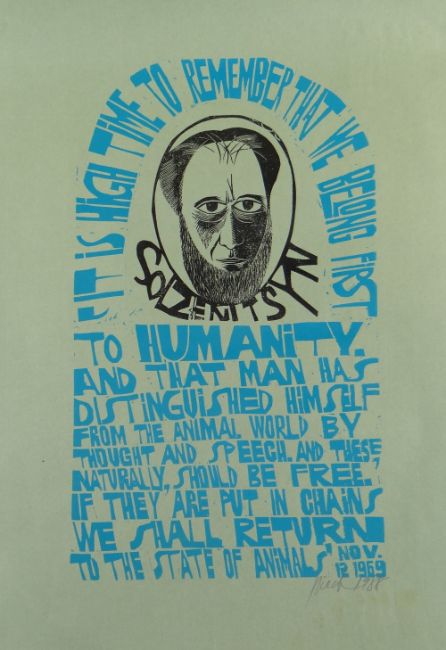 "IT IS HIGH TIME TO REMEMBER THAT WE BELONG FIRST
SOLZENITSYN
TO HUMANITY.
AND THAT MAN HAS
DISTINGUISHED HIMSELF
FROM THE ANIMAL WORLD BY
THOUGHT AND SPEECH. AND THESE,
NATURALLY, SHOULD BE FREE.
IF THEY ARE PUT IN CHAINS
WE SHALL RETURN
TO THE STATE OF ANIMALS"
NOV.
12 1969